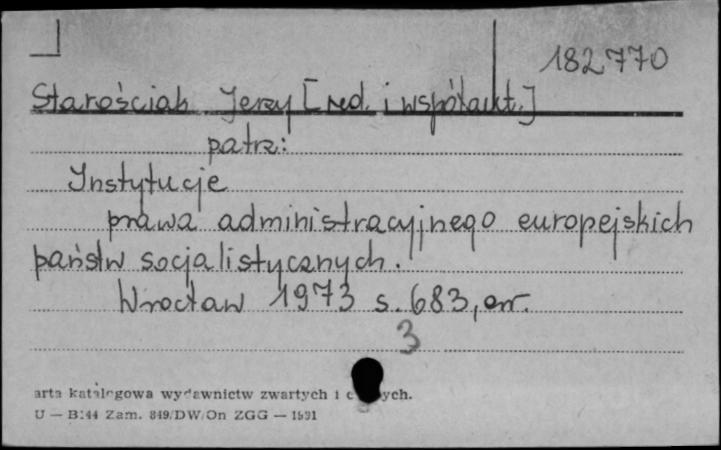 182770
Starościak Jerzy [red. i współaut.]
patrz:
Instytucje
prawa administracyjnego europejskich
państw socjalistycznych.
Wrocław 1973 s. 683, err.
3
arta katalogowa wydawnictw zwartych i c ych.
U — B:44 Zam. 849/DW/On ZGG — 1591